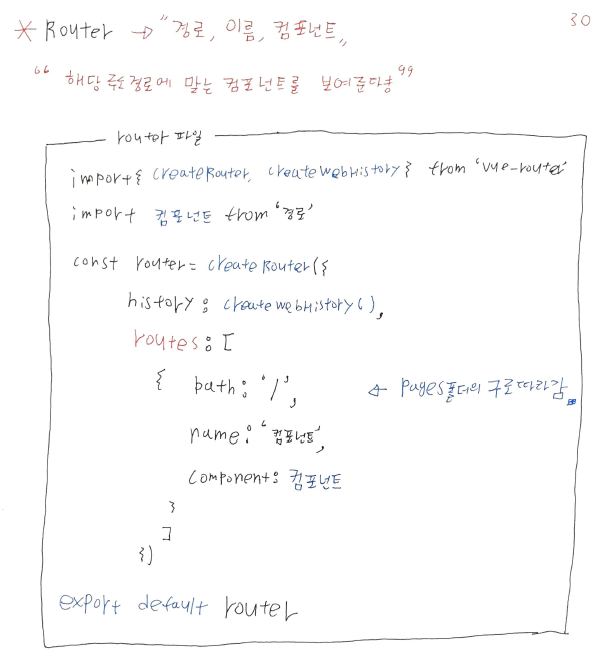 * Router → "경로, 이름, 컴포넌트"
30
"해당 주소경로에 맞는 컴포넌트를 보여준다"
router 파일
import { createRouter, createWebHistory } from 'vue-router'
import 컴포넌트 from '경로'
const router = createRouter({
history : createWebHistory(),
routes : [
{ path : '/', ← pages폴더의 구조따라감.
name : '컴포넌트',
component : 컴포넌트
}
]
})
export default router